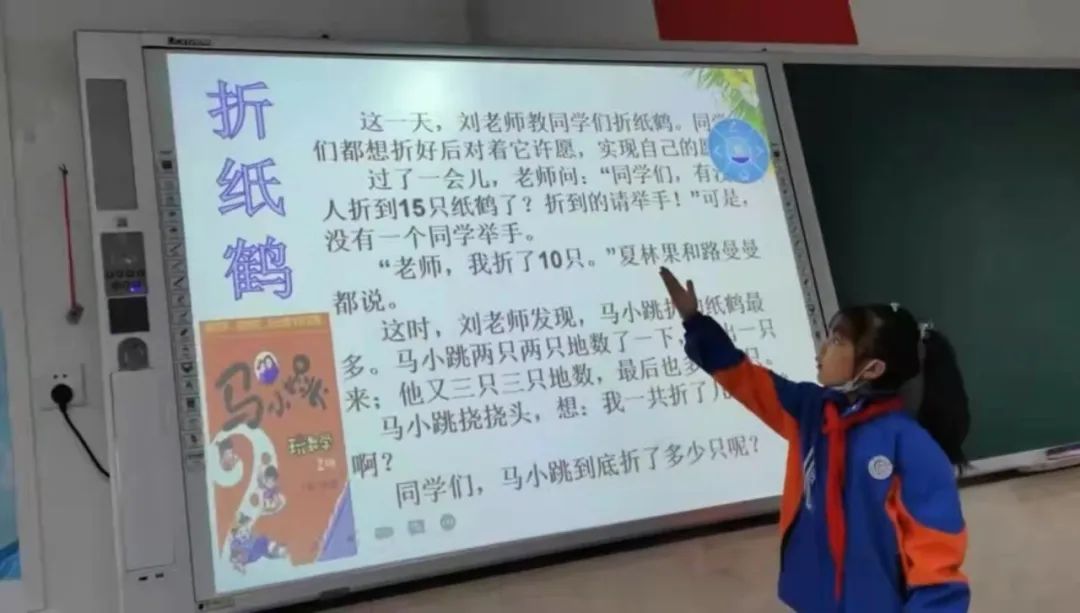 折纸鹤
这一天，刘老师教同学们折纸鹤。同
们都想折好后对着它许愿，实现自己的
过了一会儿，老师问：“同学们，有
人折到15只纸鹤了？折到的请举手！”可是，
没有一个同学举手。
“老师，我折了10只。”夏林果和路曼曼
都说。
这时，刘老师发现，马小跳折 纸鹤最
多。马小跳两只两只地数了一下， 出一只
来；他又三只三只地数，最后也多 只。
马小跳挠挠头，想：我一共折了
啊？
同学们，马小跳到底折了多少只呢？
马小跳
玩数学